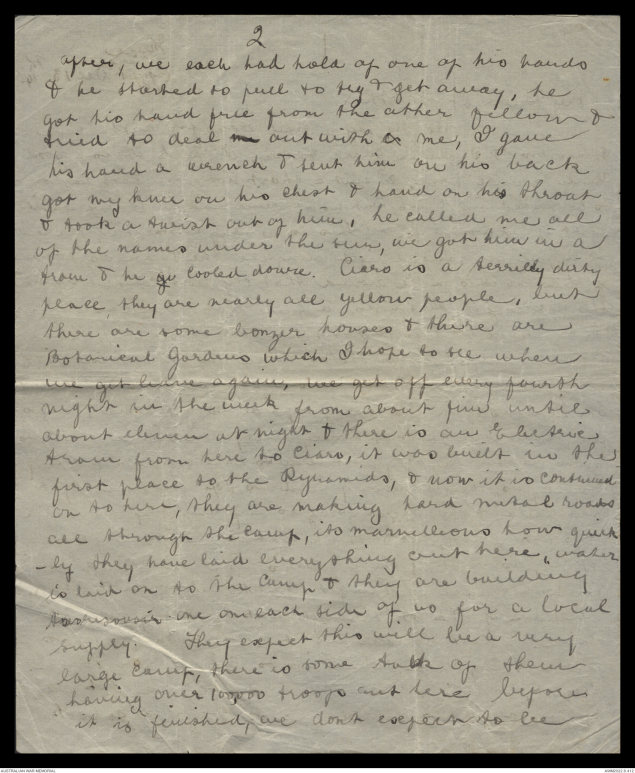 2
after, we each had hold of one of his hands
& he started to pull to try & get away, he
got his hand free from the other fellow &
tried to deal out with me, I gave
his hand a wrench & sent him on his back
got my knee on his chest & hand on his throat
& took a twist out of him, he called me all
of the names under the sun, we got him in a
tram & he cooled down. Ciaro is a terribly dirty
place, they are nearly all yellow people, but
there are some bonzer houses & there are
Botanical Gardens which I hope to see when
we get leave again, we get off every fourth
night in the week from about five until
about eleven at night & there is an Electric
tram from here to Ciaro, it was built in the
first place to the Pyramids, & now it is continued
on to here, they are making hard metal roads
all through the camp, its marvellious how quick
-ly they have laid everything out here, water
is laid on to the camp & they are building
one on each side of us for a local
supply. They expect this will be a very
large camp, there is some talk of them
having over 100,000 troops out here before
it is finished, we dont expect to be
AUSTRALIAN WAR MEMORIAL